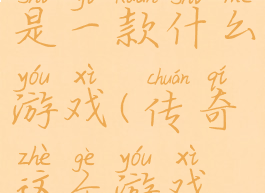 shì yì kuǎn shí me
是一款什么
yóu xì chuán qí
游戏(传奇
zhè gè yóu xì
这个游戏